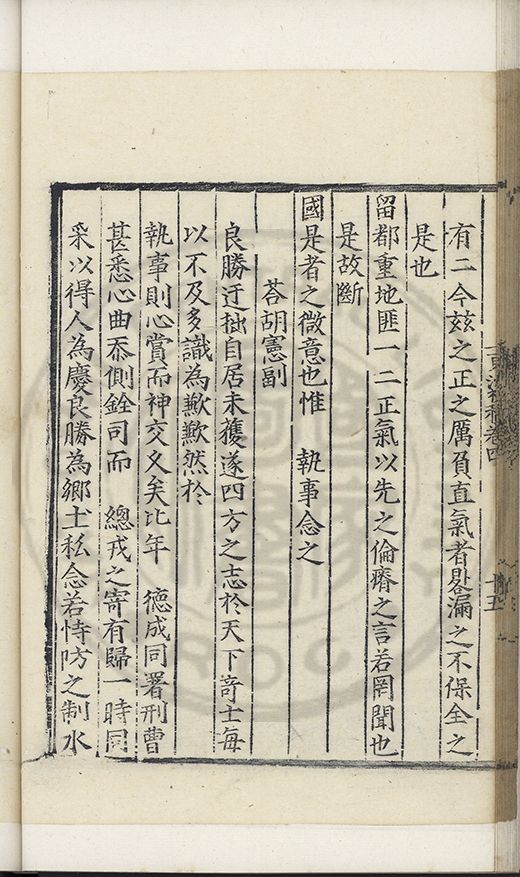 有二今玆之正之厲負直氣者畧漏之不保全之
是也
留都重地匪一二正氣以先之倫瘠之言若罔聞也
是故斷
國是者之微意也惟　執事念之
荅胡憲副
良勝迂拙自居未獲遂四方之志於天下竒士每
以不及多識為歉歉然於
執事則心賞而神交久矣比年　德成同署刑曹
甚悉心曲忝側銓司而　總戎之寄有歸一時同
寀以得人為慶良勝為鄉土私念若恃防之制水